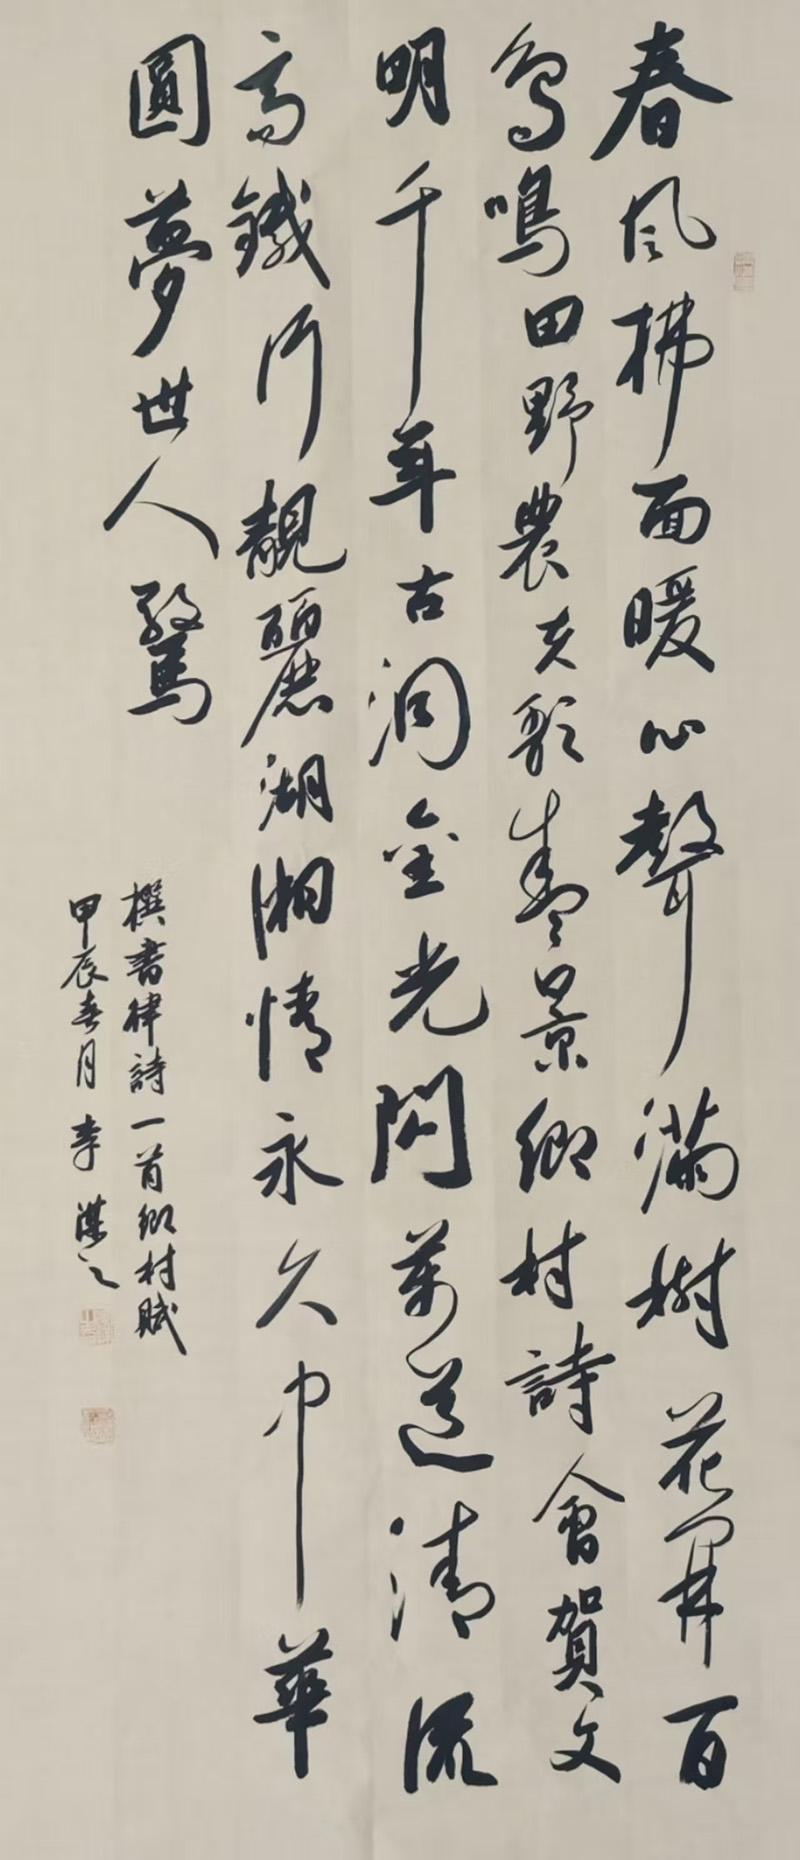 春風拂面暖心聲滿樹花開百
鳥鳴田野農夫彰盛景鄉村詩會賀文
明千年古洞金光閃萬道清流
高鐵行靚麗湖湘情永久中華
圓夢世人驚
撰書律詩一首鄉村賦
甲辰春月李謀之